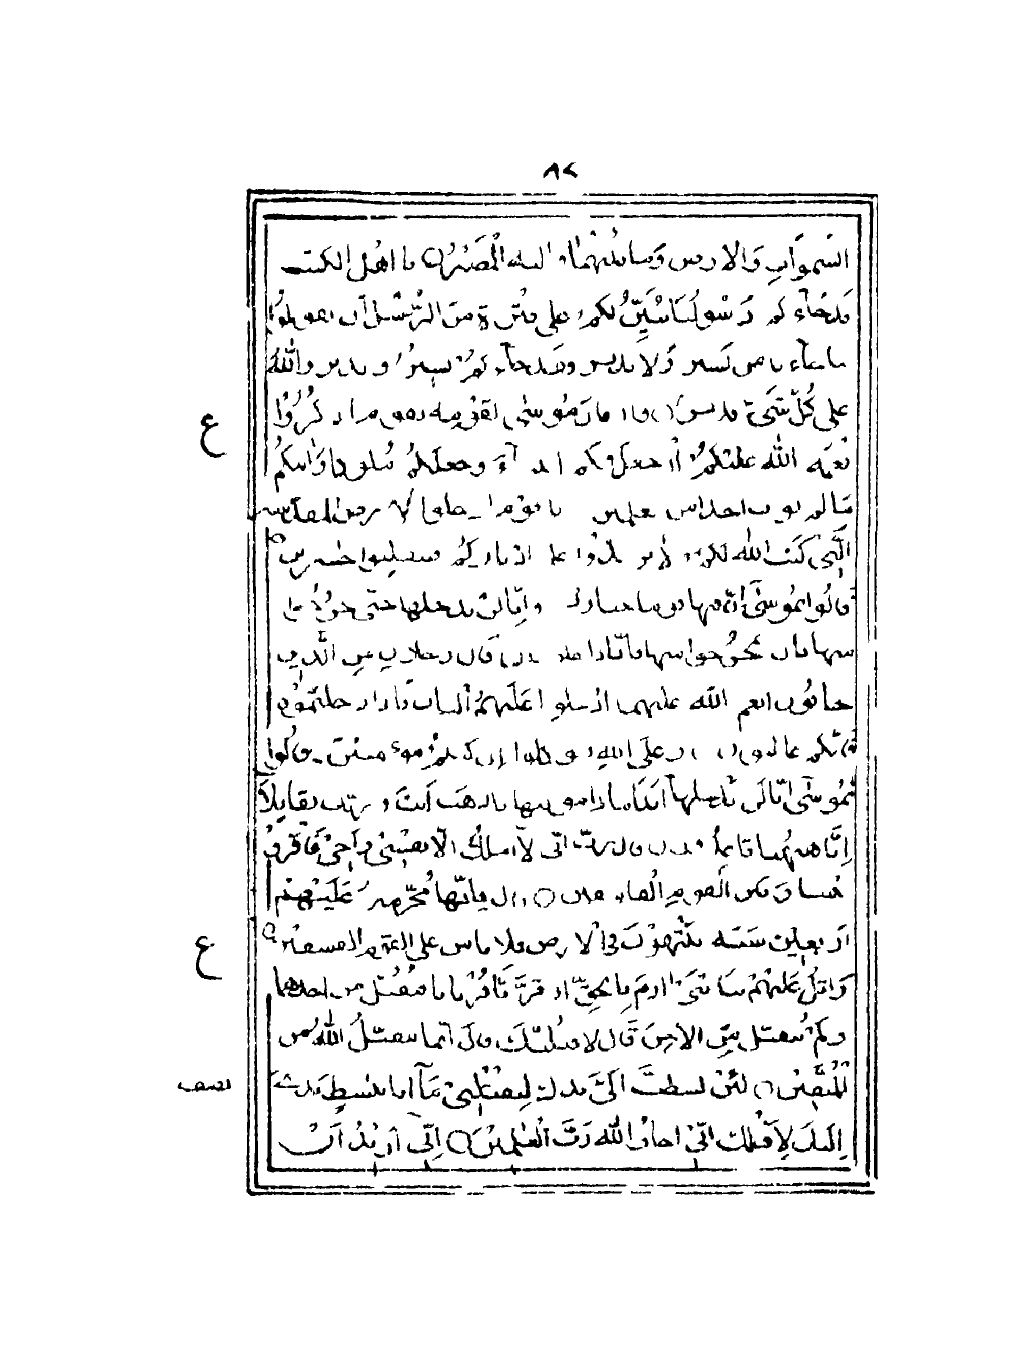 ٨٢
السموات والارض وما بينهما واليه المصير يا اهل الكتب
قد جآءكم رسولنا يبين لكم على فترة من الرسل ان تقولوا
ما جآءنا من بشير ولا نذير فقد جآءكم بشير ونذير والله
على كل شىء قدير واذ قال موسى لقومه يقوم اذكروا
نعمة الله عليكم اذ جعل فيكم انبيآء وجعلكم ملوكا واتىكم
ما لم يؤت احدا من العلمين يا قوم ادخلوا الارض المقدسة
التى كتب الله لكم ولا ترتدوا على ادباركم فتنقلبوا خسرين
قالوا يموسى ان فيها قوما جبارين وانا لن ندخلها حتى يخرجوا
منها فان يخرجوا منها فانا داخلون قال رجلان من الذين
يخافون انعم الله عليهما ادخلوا عليهم الباب فاذا دخلتموه
فانكم غالبون وعلى الله فتوكلوا ان كنتم مؤمنين قالوا
يموسى انا لن ندخلها ابدا ما داموا فيها فاذهب انت وربك فقاتلا
انا ههنا قاعدون قال رب انى لا املك الا نفسى واخى فافرق
بيننا وبين القوم الفاسقين قال فانها محرمة عليهم
اربعين سنة يتيهون فى الارض فلا تاس على القوم الفسقين
واتل عليهم نبا ابنى ادم بالحق اذ قربا قربانا فتقبل من احدهما
ولم يتقبل من الاخر قال لاقتلنك قال انما يتقبل الله من
المتقين لئن بسطت الى يدك لتقتلنى مآ انا بباسط يدى
اليك لاقتلك انى اخاف الله رب العلمين انى اريد ان
ع
ع
نصف